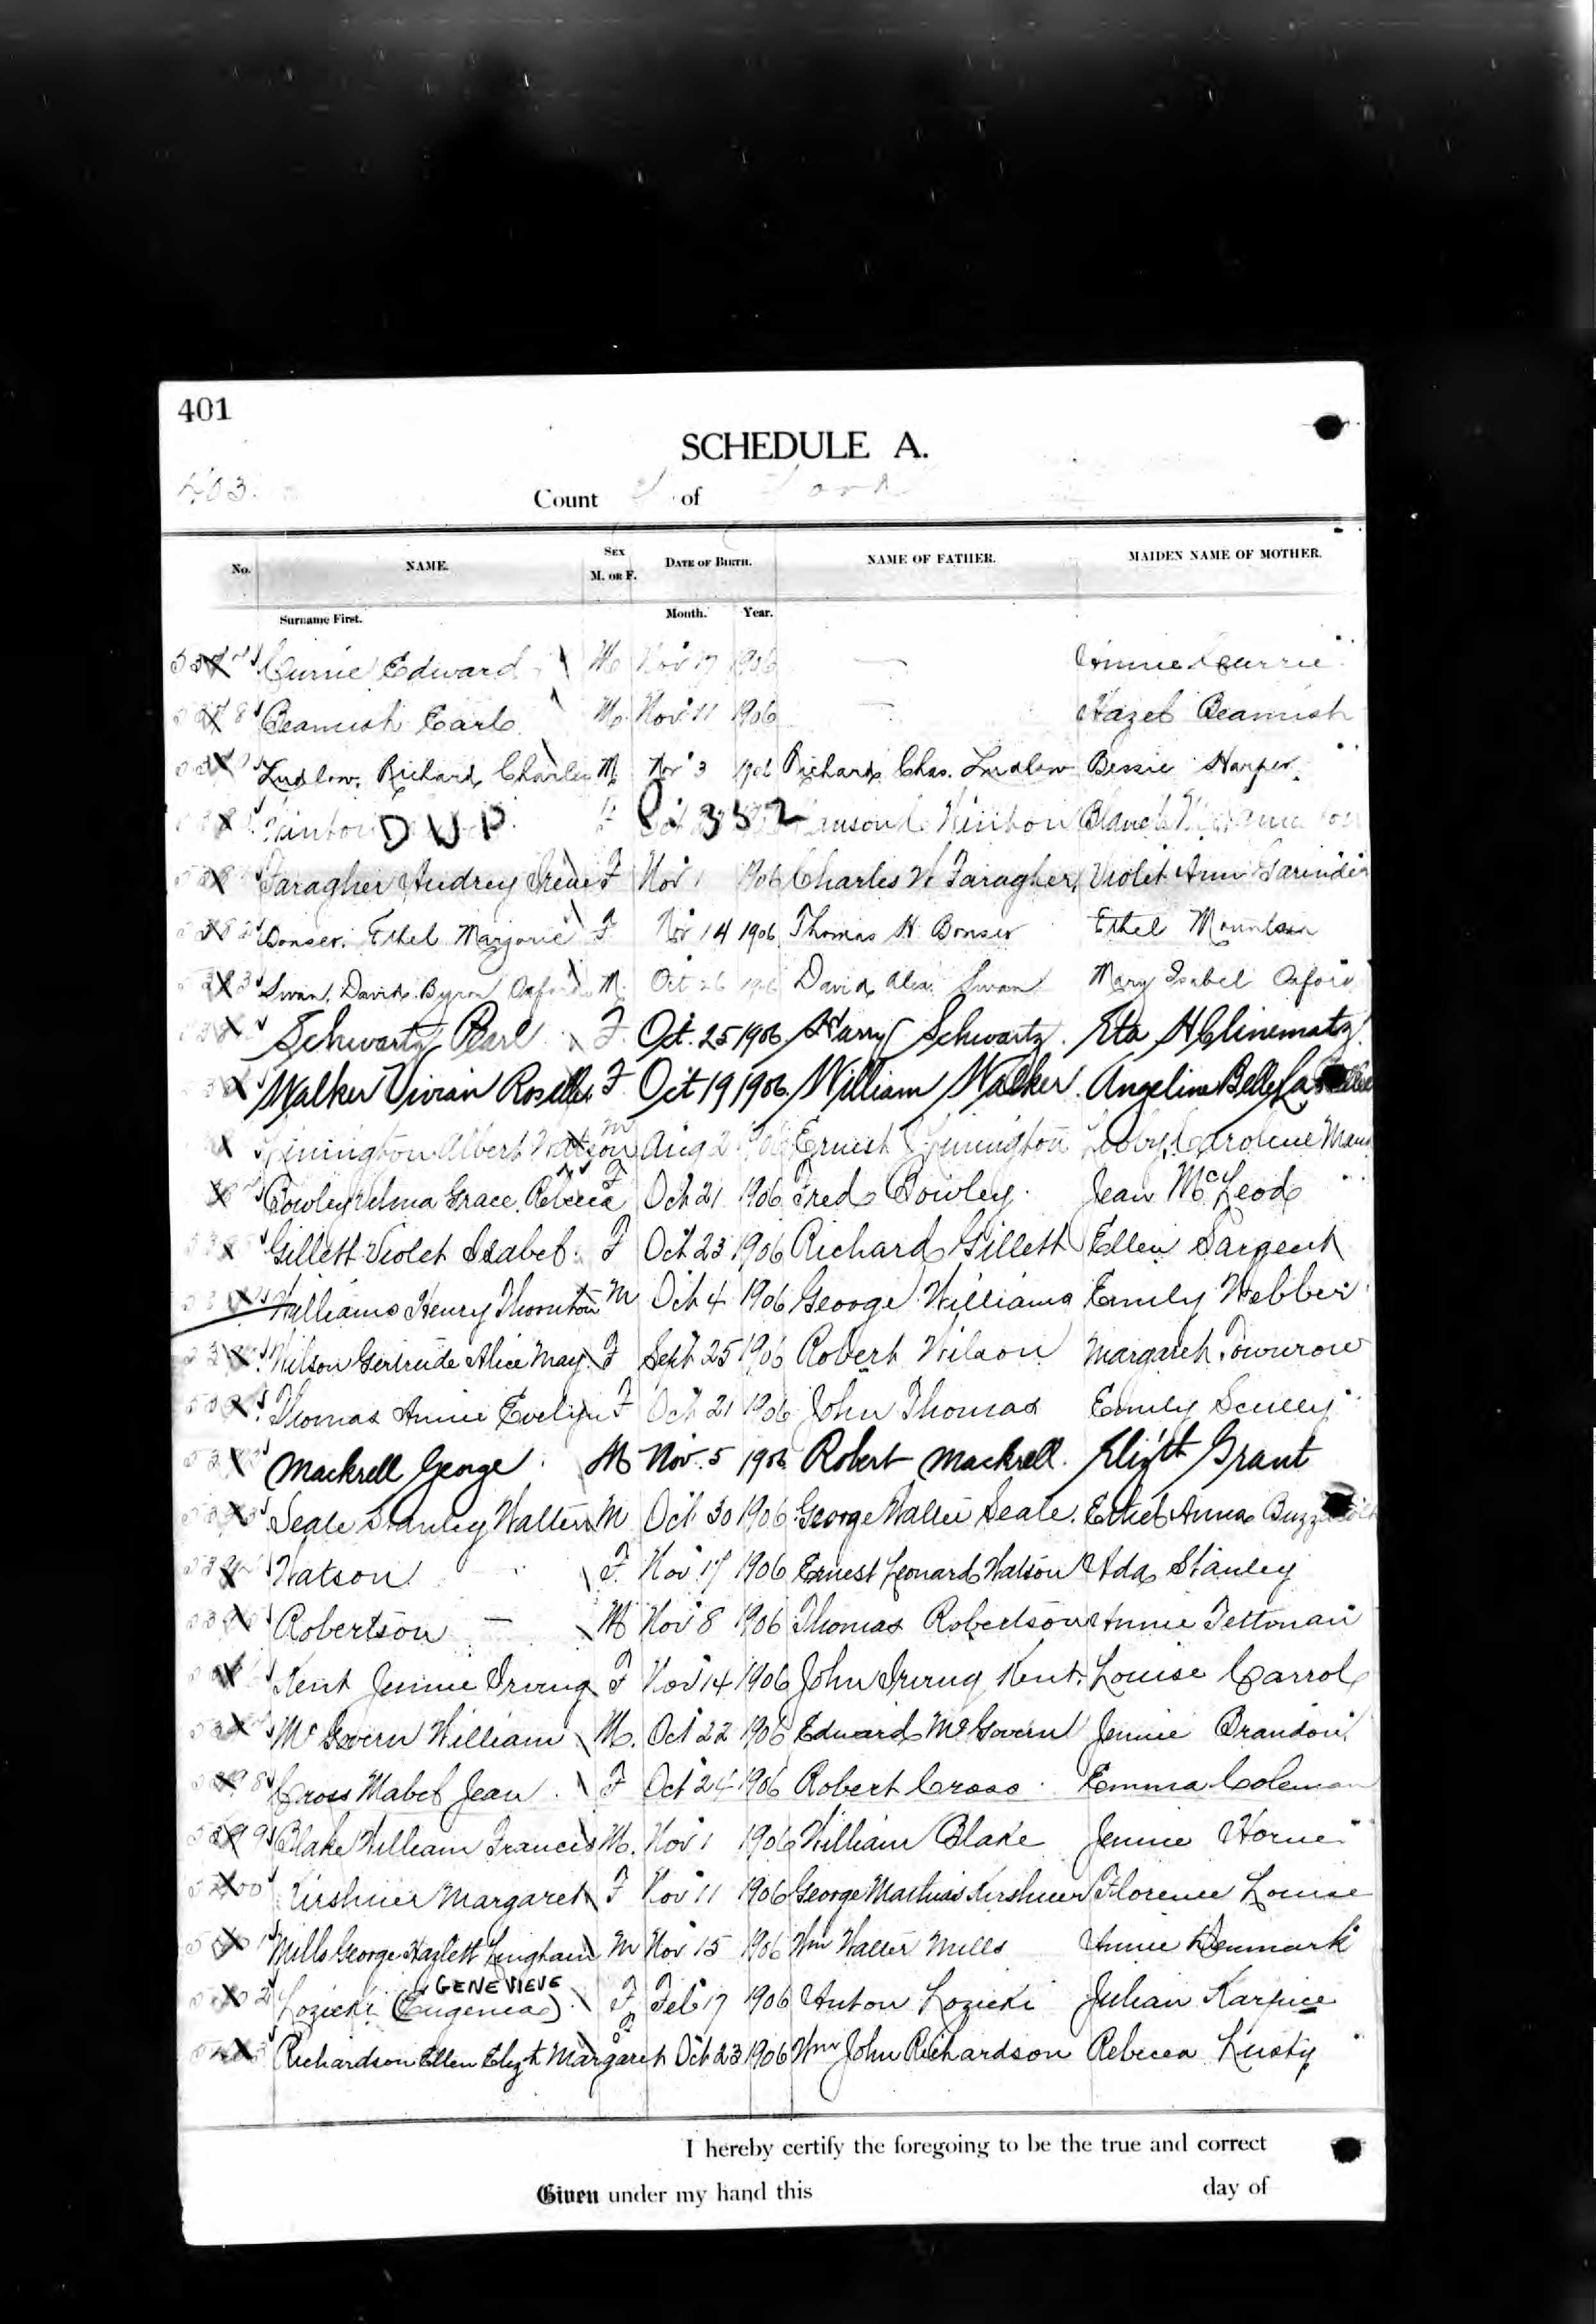 401
SCHEDULE A.
403
County of York
No. NAME. SEX M. OR F. DATE OF BIRTH. NAME OF FATHER. MAIDEN NAME OF MOTHER.
Surname First. Month. Year.
Currie Edward M Nov 17 1906 — Annie Currie
Beamish Earl M. Nov 11 1906 — Hazel Beamish
Ludlow, Richard Charles M Nov 3 1906 Richard Chas. Ludlow Bessie Harper
Hinton DUP. F 352 Hinton Blanch
Faragher Audrey Irene F Nov 1 1906 Charles W Faragher Violet Ann
Bonser, Ethel Marjorie F Nov 14 1906 Thomas H Bonser Ethel Mountain
Swan, David Byron Oxford M. Oct 26 1906 David Alex. Swan Mary Isabel Oxford
Schwartz Pearl F. Oct. 25 1906 Harry Schwartz. Eta
Walker Vivian F Oct 19 1906 William Walker. Angelina Belle
Albert Watson m Aug 2 1906 Ernest Caroline
Bowley Velma Grace Rebecca F Oct 21 1906 Fred Bowley. Jean McLeod
Gillett Violet Isabel F Oct 23 1906 Richard Gillett Ellen Sargent
Williams Henry Thornton M Oct 4 1906 George Williams Emily Webber
Wilson Gertrude Alice May. F Sept 25 1906 Robert Wilson Margaret
Thomas Annie Evelyn F Oct 21 1906 John Thomas Emily Scully
Mackrell George M Nov. 5 1906 Robert Mackrell. Elizth Grant
Seale Stanley Walter M Oct 30 1906 George Walter Seale. Ethel Anna
Watson F. Nov 17 1906 Ernest Leonard Watson Ada Stanley
Robertson — M Nov 8 1906 Thomas Robertson Annie
Kent Jennie Irving F Nov 14 1906 John Irving Kent. Louise Carrol
McGovern William M. Oct 22 1906 Edward McGovern Jennie Brandon
Cross Mabel Jean F Oct 24 1906 Robert Cross Emma Coleman
Blake William Francis M. Nov 1 1906 William Blake Jennie Horne
Kirshner Margaret F Nov 11 1906 George Mathias Kirshner Florence Louise
Mills George Hazlett Lingham M Nov 15 1906 Wm Walter Mills Annie Denmark
GENEVIEVE
Lozicki (Eugenia) F Feb 17 1906 Anton Lozicki Julian Karpice
Richardson Ellen Elizth Margaret F Oct 23 1906 Wm John Richardson Rebecca Lusty
I hereby certify the foregoing to be the true and correct
Given under my hand this day of